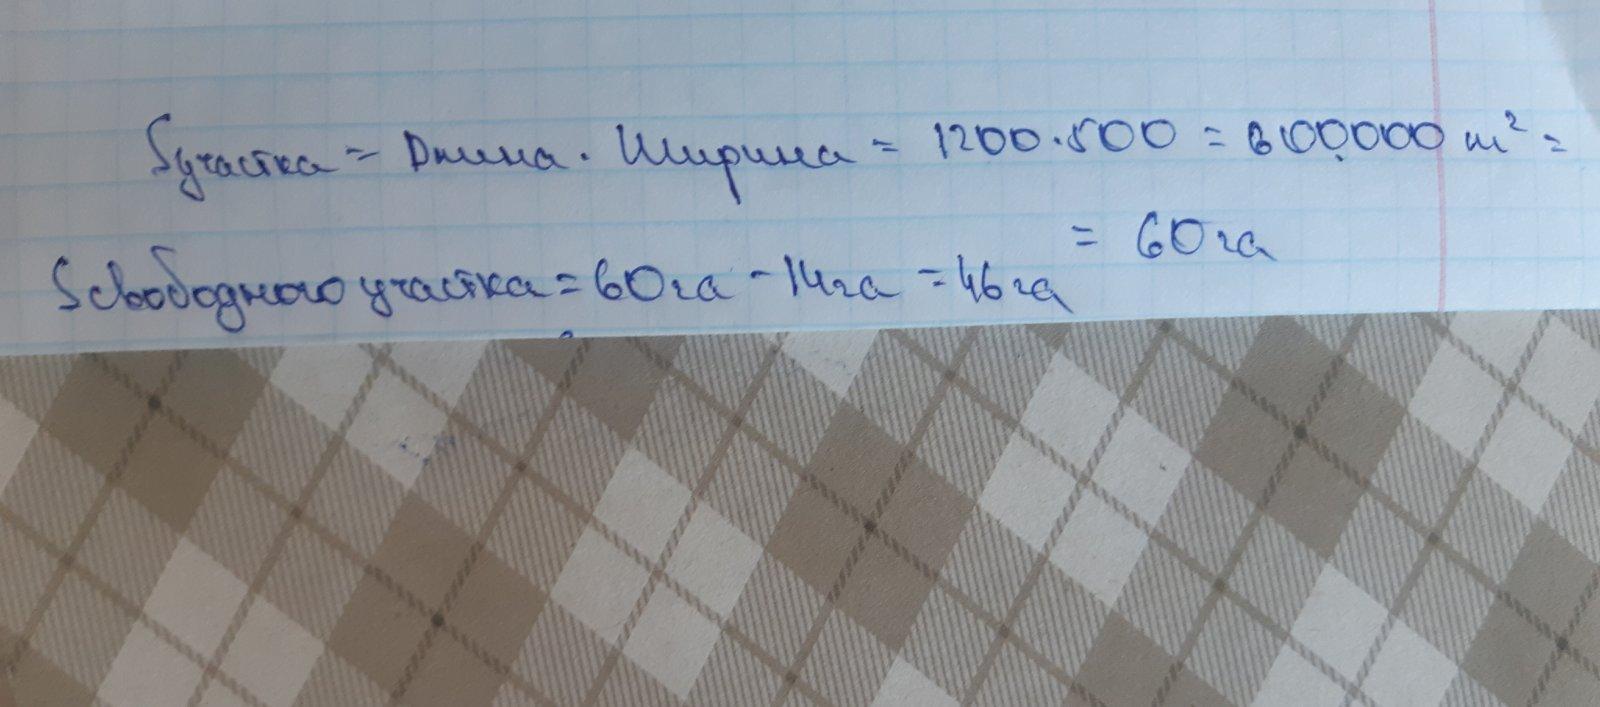 Sучастка = Длина · Ширина = 1200·500 = 600000 м² =
= 60га
Sсвободного участка = 60га - 14га = 46га